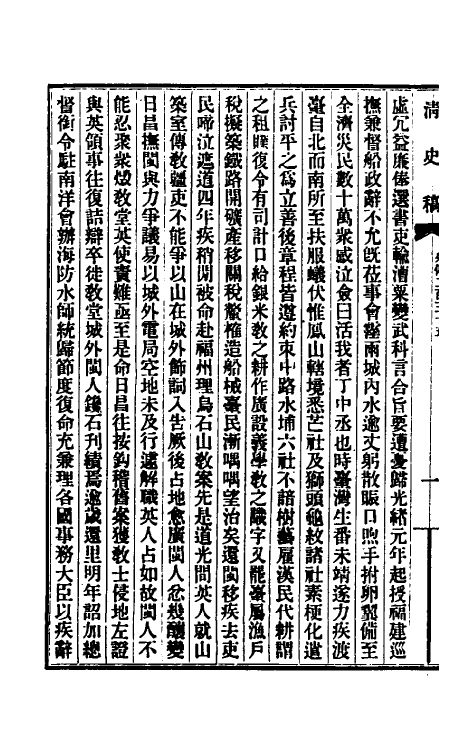 清史稿
虛冗益廉俸選書吏輸漕粟變武科言合旨要遭憂歸光緒元年起授福建巡
撫兼督船政辭不允既莅事會霪雨城內水逾丈躬散賑口煦手拊卵翼備至
全濟災民數十萬衆感泣僉曰活我者丁中丞也時臺灣生番未靖遂力疾渡
臺自北而南所至扶服蟻伏惟鳳山轄境悉芒社及獅頭龜紋諸社素梗化遣
兵討平之爲立善後章程皆遵約束中路水埔六社不諳樹藝雇漢民代耕謂
之租䁔復令有司計口給銀米敎之耕作廣設義學敎之識字又罷臺屬漁戶
稅擬築鐵路開礦產移關稅釐榷造船械臺民漸喁喁望治矣還閩移疾去吏
民啼泣遮道四年疾稍閒被命赴福州理烏石山敎案先是道光間英人就山
築室傳敎疆吏不能爭以山在城外飾詞入告厥後占地愈廣閩人忿幾釀變
日昌撫閩與力爭議易以城外電局空地未及行遽解職英人占如故閩人不
能忍衆燬敎堂英使責難亟至是命日昌往按鈎稽舊案獲敎士侵地左證
與英領事往復詰辯卒徙敎堂城外閩人鑱石刊績焉逾歲還里明年詔加總
督銜令駐南洋會辦海防水師統歸節度復命充兼理各國事務大臣以疾辭